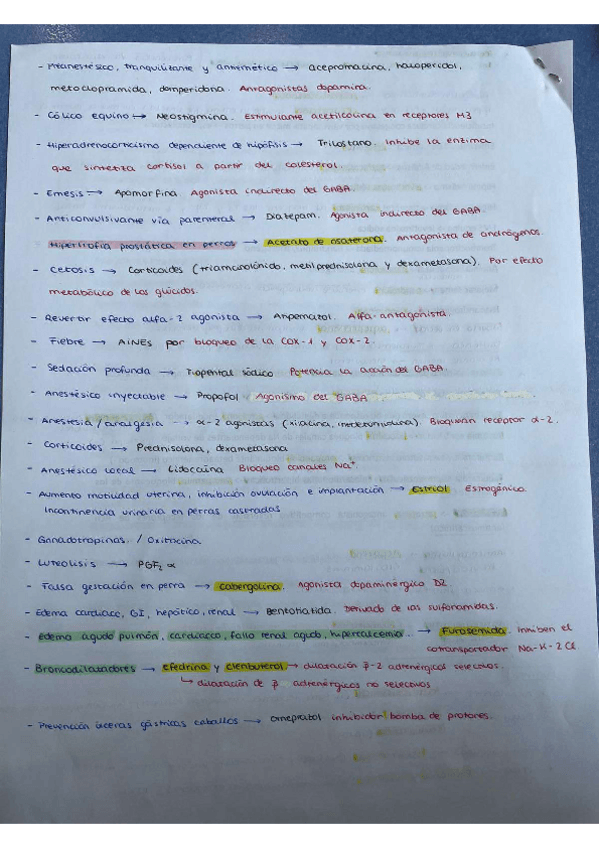 - Preanestésico, tranquilizante y antiemético → acepromacina, haloperidol,
metoclopramida, domperidona. Antagonistas dopamina.
- Cólico equino → Neostigmina. Estimulante acetilcolina en receptores M3
- Hiperadrenocorticismo dependiente de hipófisis → Trilostano. Inhibe la enzima
que sintetiza cortisol a partir del colesterol.
- Emesis → Apomorfina. Agonista indirecto del GABA.
- Anticonvulsivante vía parenteral → Diatepam. Agonista indirecto del GABA.
Hipertrofia prostática en perros → Acetato de osaterona. Antagonista de andrógenos.
- Cetosis → Corticoides (triamcinolónido, metilprednisolona y dexametasona). Por efecto
metabólico de los glúcidos.
- Revertir efecto alfa-2 agonista → Atipamezol. Alfa-antagonista.
- Fiebre → AINES por bloqueo de la COX-1 y COX-2.
- Sedación profunda → Tiopental sódico Potencia la acción del GABA.
- Anestésico inyectable → Propofol Agonismo del GABA
- Anestesia / analgesia → α-2 agonistas (xilacina, medetomidina). Bloquean receptor α-2.
- Corticoides → Prednisolona, dexametasona
- Anestésico local → Lidocaína Bloqueo canales Na⁺
- Aumento motilidad uterina, inhibición ovulación e implantación → Estriol Estrogénico
Incontinencia urinaria en perras castradas
- Gonadotropinas / Oxitocina
- Luteolisis → PGF₂ α
- Falsa gestación en perra → cabergolina. Agonista dopaminérgico D2
- Edema cardiaco, GI, hepático, renal → Bentotiatida. Derivado de las sulfonamidas.
- edema agudo pulmón, cardiacco, fallo renal agudo, hipercalcemia. → Furosemida. Inhiben el
cotransportador Na-K-2Cl
- Broncodilatadores → efedrina y clenbuterol → dilatación β-2 adrenérgicos selectivos.
↳ dilatación de β adrenérgicos no selectivos
- Prevención úlceras gástricas caballos → omeprazol inhibidor bomba de protones.